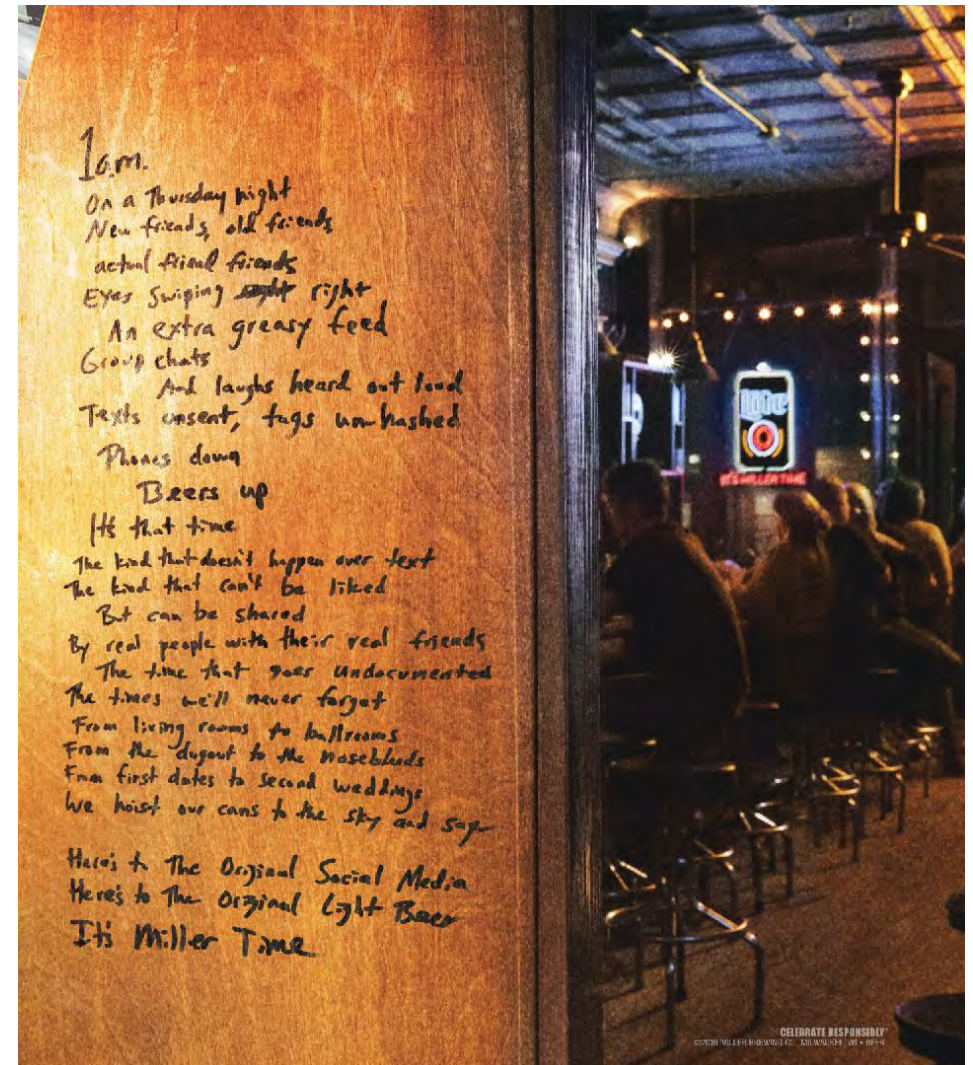 1am.
On a Thursday night
New friends, old friends
actual friend friends
Eyes Swiping right
An extra greasy feed
Group chats
And laughs heard out loud
Texts unsent, tags un-hashed
Phones down
Beers up
It's that time
The kind that doesn't happen over text
The kind that can't be liked
But can be shared
By real people with their real friends
The time that goes undocumented
The times we'll never forget
From living rooms to ballrooms
From the dugout to the nosebleeds
From first dates to second weddings
We hoist our cans to the sky and say
Here's to The Original Social Media
Here's to The Original Light Beer
It's Miller Time
Lite
IT'S MILLER TIME
CELEBRATE RESPONSIBLY™
©2019 MILLER BREWING CO., MILWAUKEE, WI • BEER